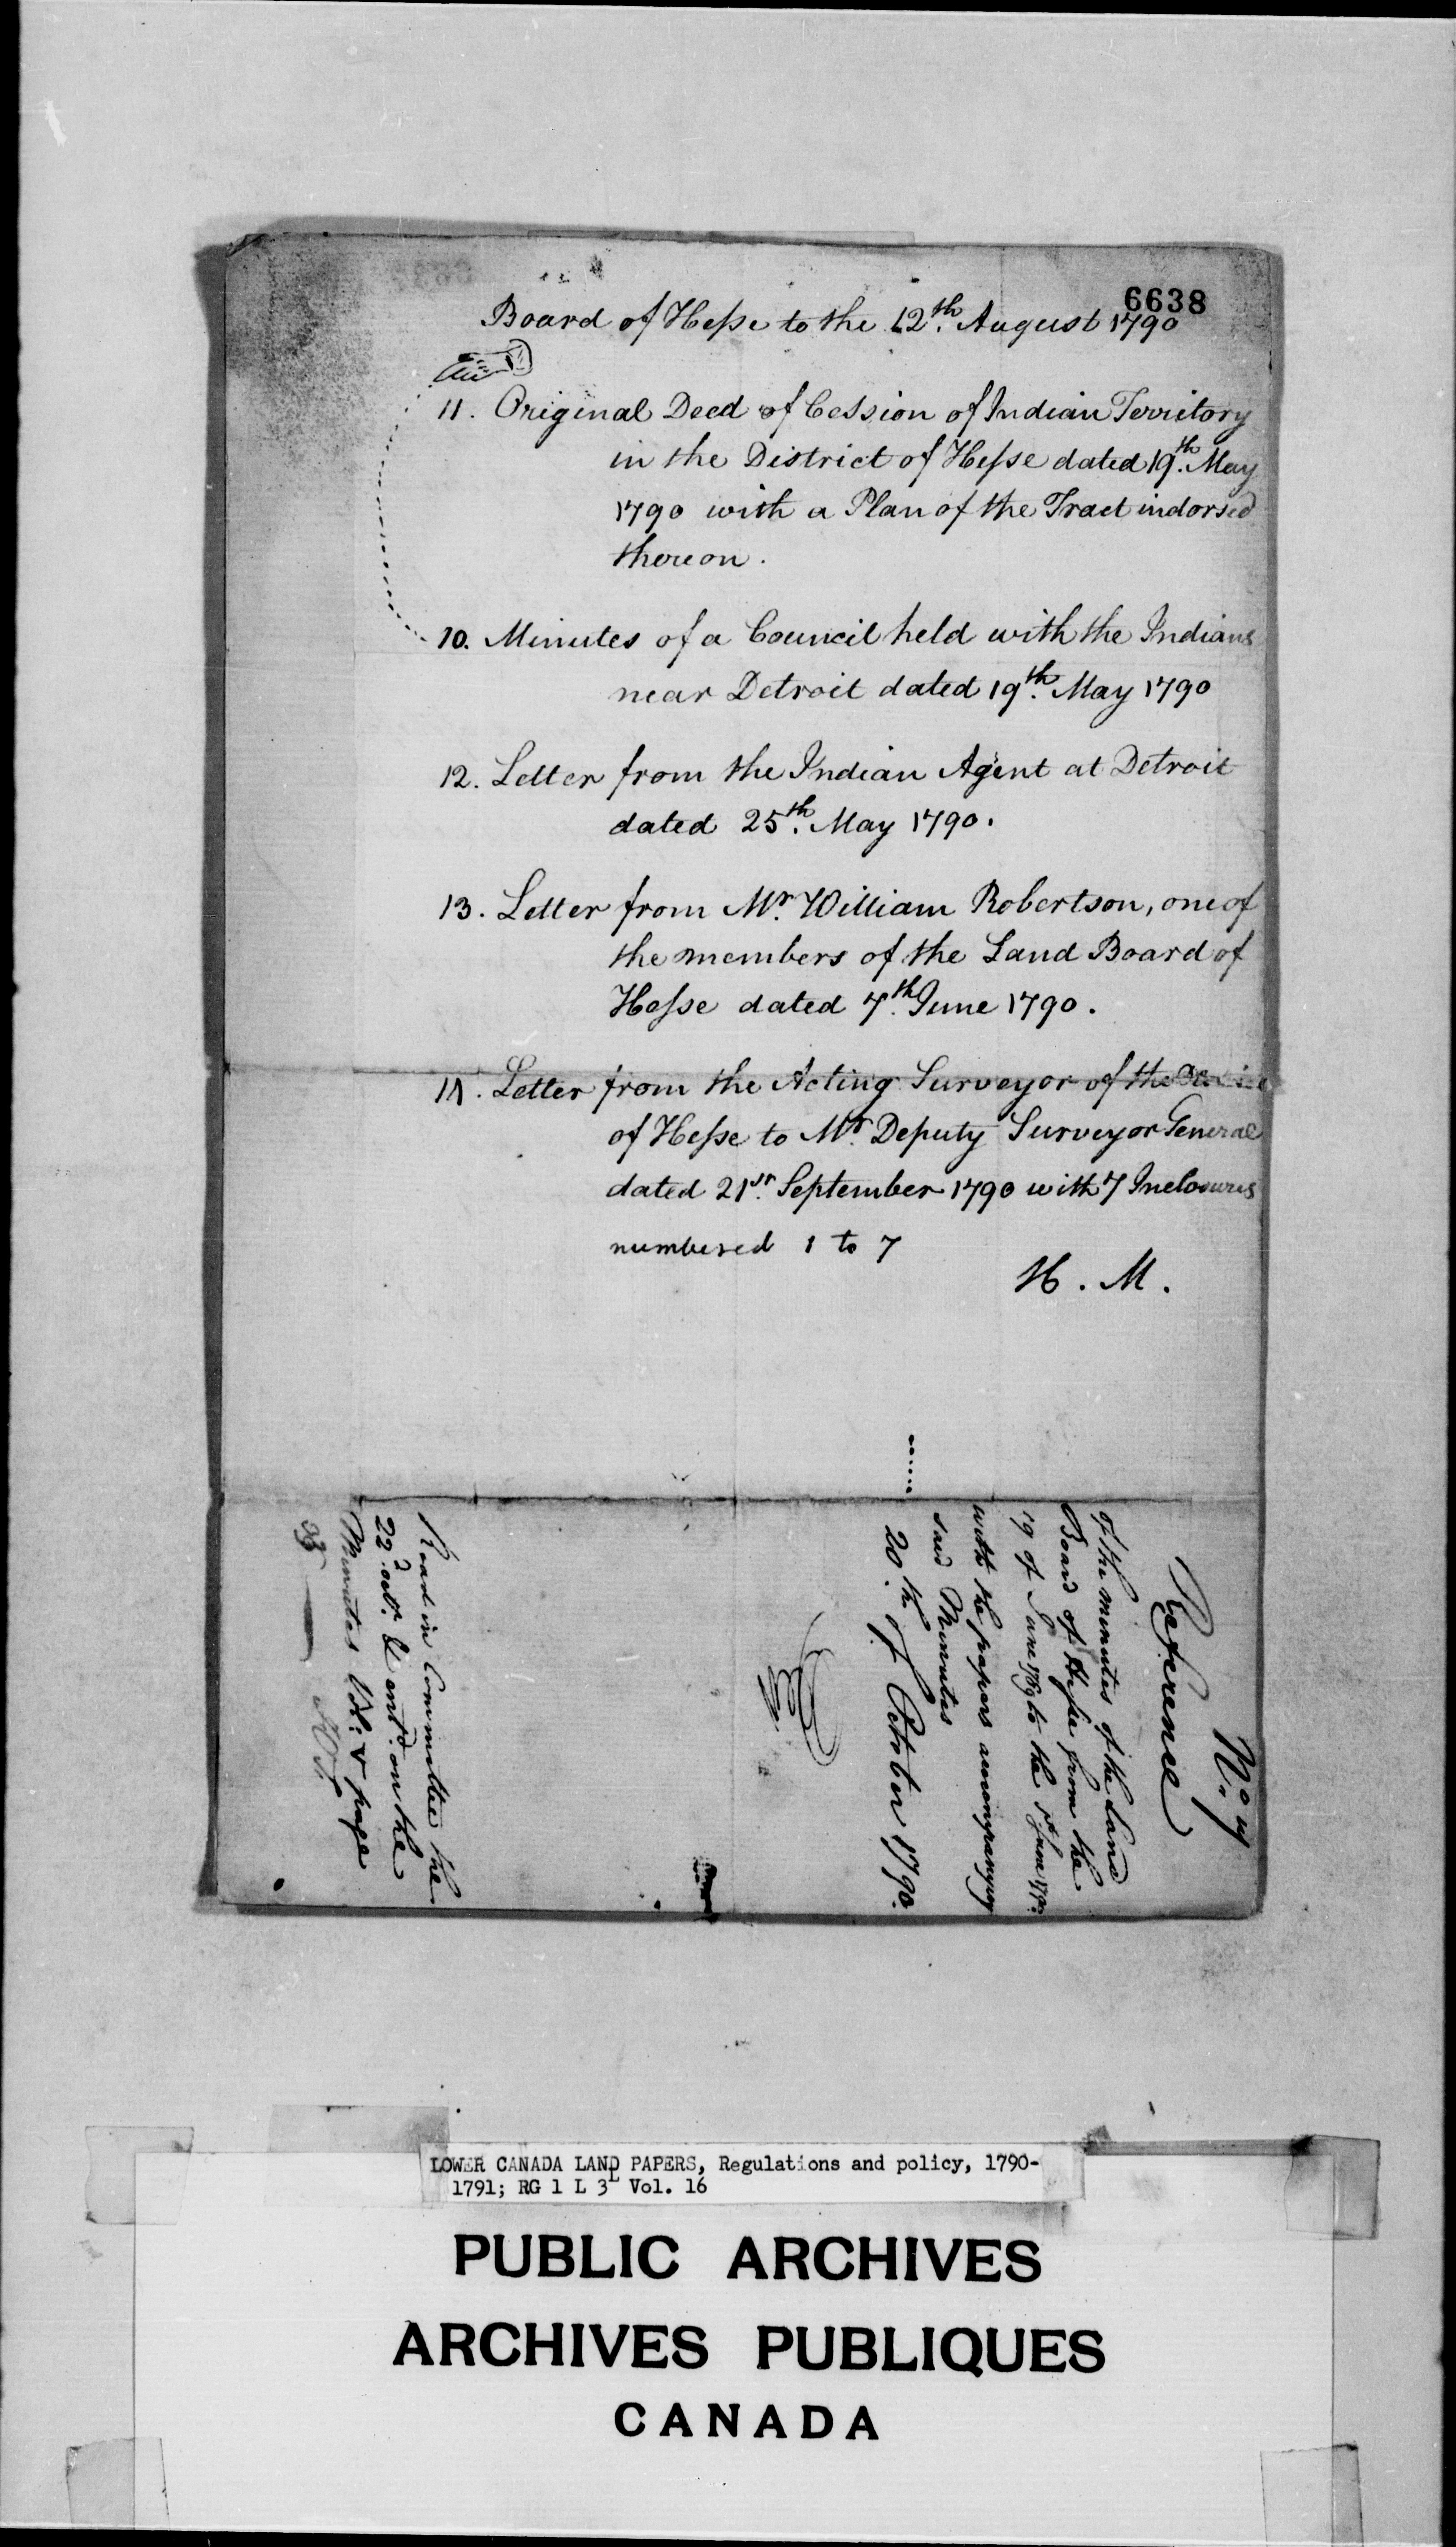 6638
Board of Hesse to the 12th. August 1790
11. Original Deed of Cession of Indian Territory
in the District of Hesse dated 19th. May
1790 with a Plan of the Tract indorsed
thereon.
10. Minutes of a Council held with the Indians
near Detroit dated 19th. May 1790
12. Letter from the Indian Agent at Detroit
dated 25th. May 1790.
13. Letter from Mr. William Robertson, one of
the members of the Land Board of
Hesse dated 7th. June 1790.
14. Letter from the Acting Surveyor of the
of Hesse to Mr. Deputy Surveyor General
dated 21st. September 1790 with 7 Inclosures
numbered 1 to 7
H. M.
No. 4
Reference
of the minutes of the Land
Board of Hesse from the
19 of June 1789 to the 1st June 1790
with the papers accompanying
said Minutes
20.th of October 1790.
Read in Committee the
22d. octr. & entd. on the
Minutes Vol: V page
33
LOWER CANADA LAND PAPERS, Regulations and policy, 1790-
1791; RG 1 L 3L Vol. 16
PUBLIC ARCHIVES
ARCHIVES PUBLIQUES
CANADA